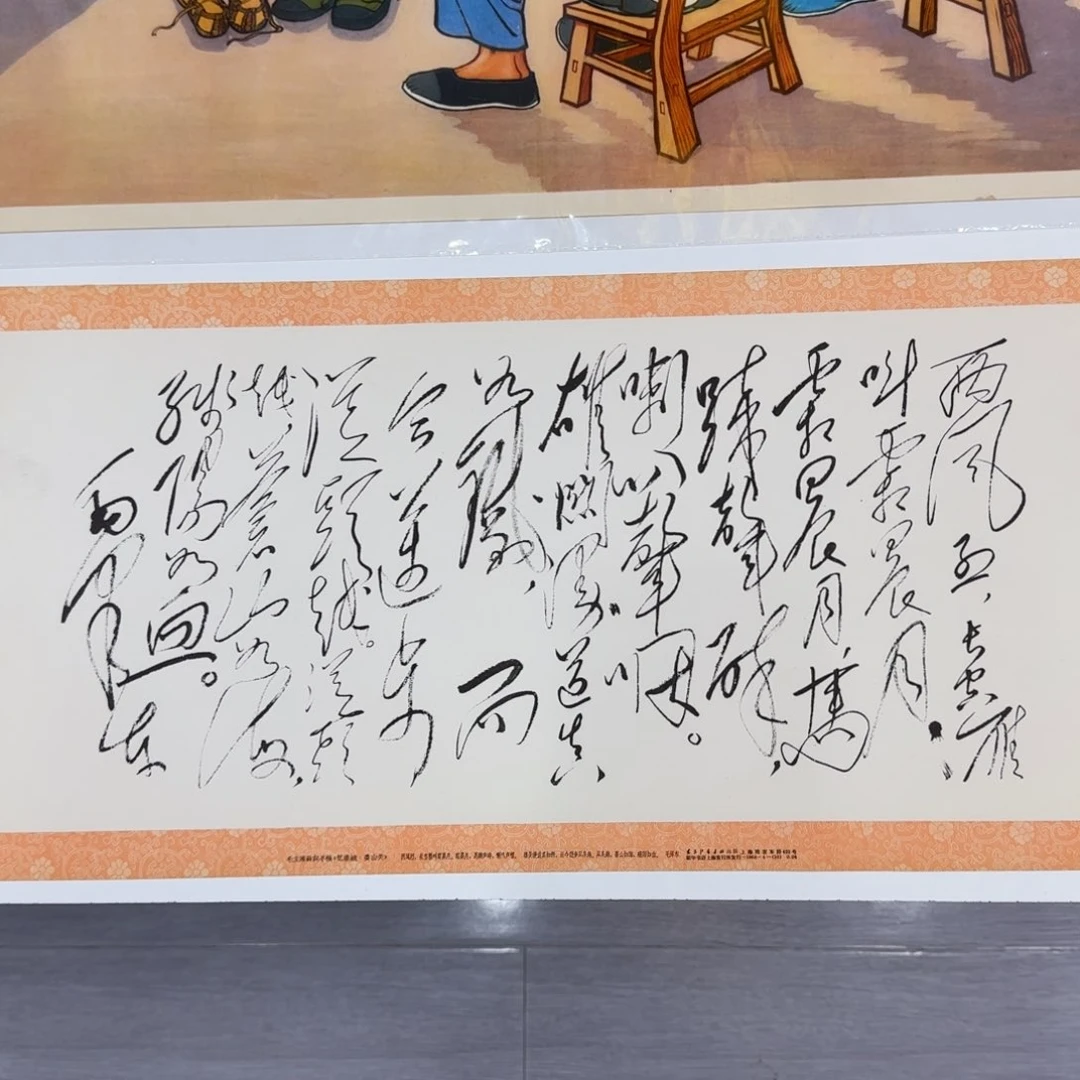 西風烈,長空雁
叫霜晨月。
霜晨月,馬
蹄聲碎,
喇叭聲咽。
雄關漫道真
如鐵,而
今邁步
從頭越。從頭
越,蒼山如海,
殘陽如血。
毛澤東
毛主席诗词手稿《忆秦娥·娄山关》 西风烈,长空雁叫霜晨月。霜晨月,马蹄声碎,喇叭声咽。 雄关漫道真如铁,而今迈步从头越。从头越,苍山如海,残阳如血。 毛泽东